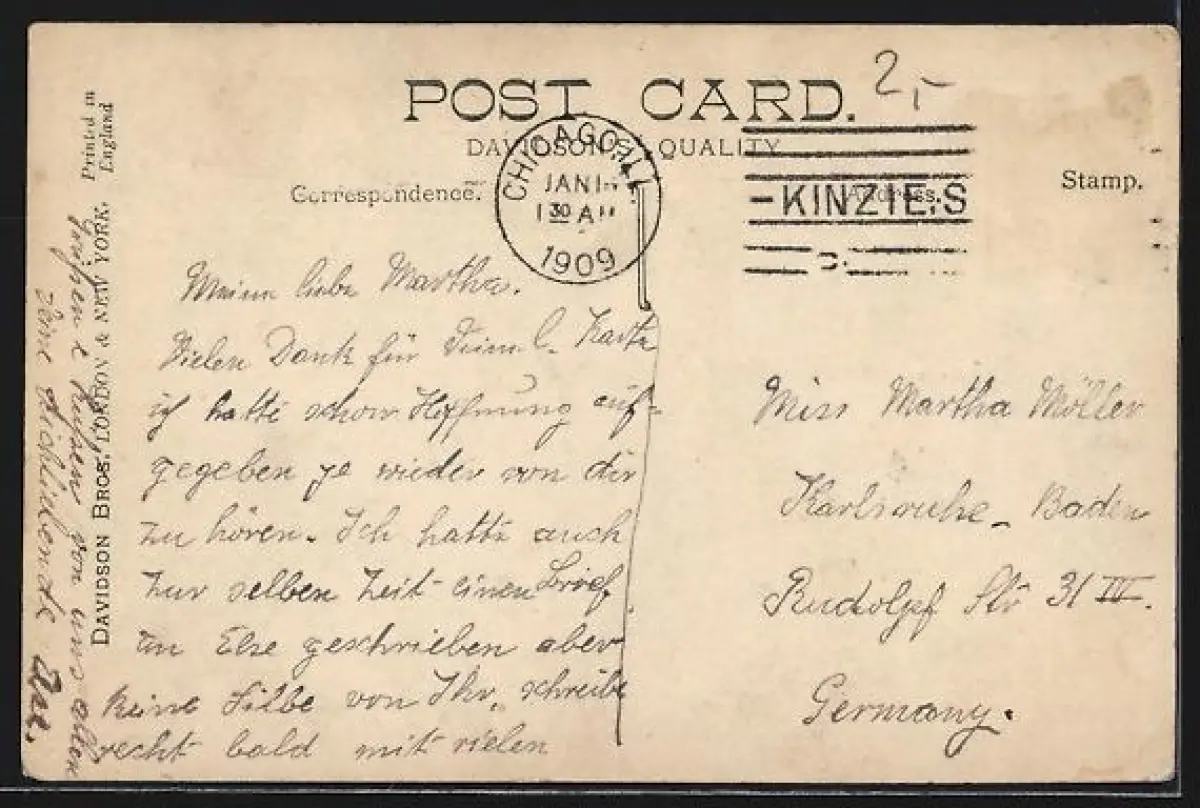 POST CARD.
2,-
DAVIDSON QUALITY
Correspondence.
Stamp.
CHICAGO, ILL.
JAN 1
1 30 A
1909
KINZIE, S
Printed in
England
DAVIDSON BROS, LONDON & NEW YORK.
Meine liebe Martha.
Vielen Dank für Deine l. Karte
ich hatte schon Hoffnung auf-
gegeben je wieder von dir
zu hören. Ich hatte auch
zur selben Zeit einen Brief
an Else geschrieben aber
keine Silbe von Ihr, schreibe
recht bald mit vielen
Grüßen & Küssen von uns allen
Deine dichliebende
Miss Martha Möller
Karlsruhe - Baden
Rudolph Str 31 IV.
Germany.